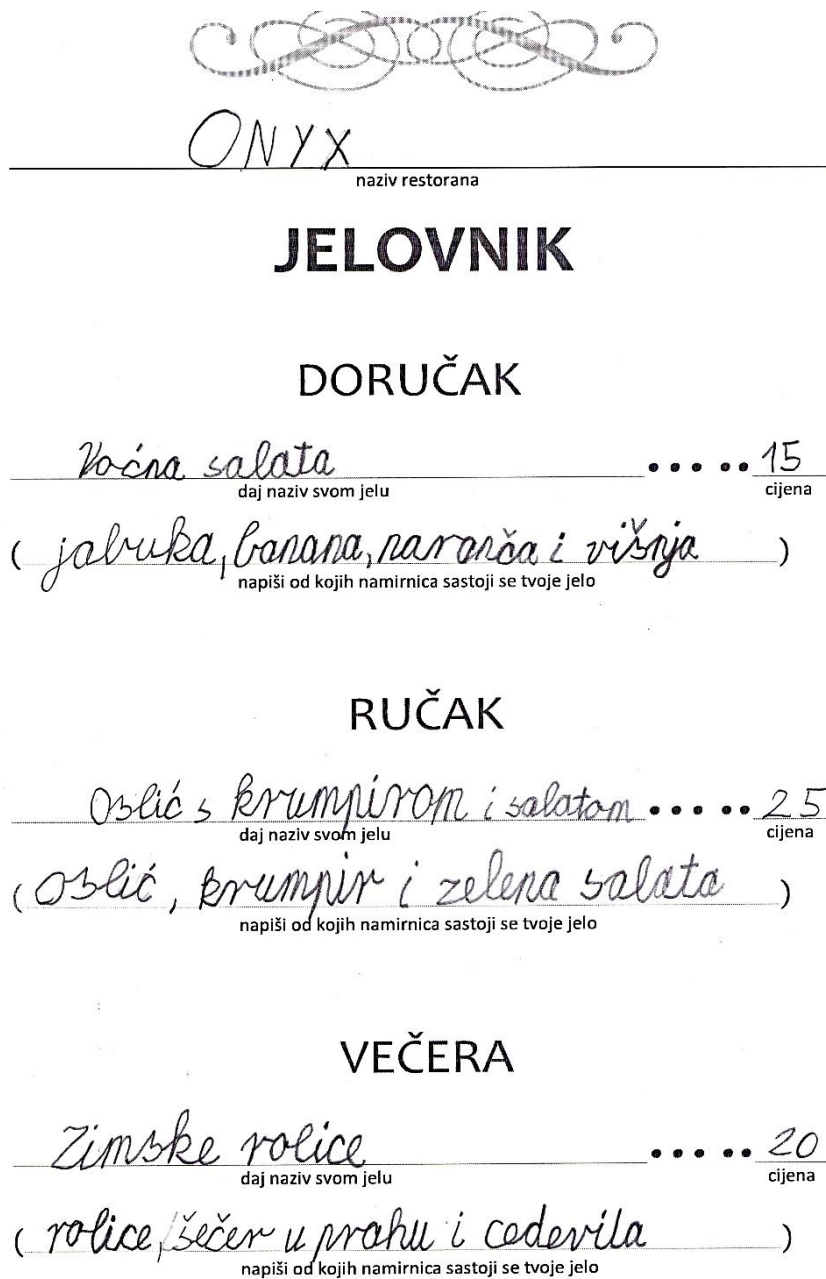 ONYX
naziv restorana
JELOVNIK
DORUČAK
Voćna salata ..... 15
daj naziv svom jelu cijena
( jabuka, banana, naranča i višnja )
napiši od kojih namirnica sastoji se tvoje jelo
RUČAK
Oslić s krumpirom i salatom ..... 25
daj naziv svom jelu cijena
( Oslić, krumpir i zelena salata )
napiši od kojih namirnica sastoji se tvoje jelo
VEČERA
Zimske rolice ..... 20
daj naziv svom jelu cijena
( rolice, šečer u prahu i cedevila )
napiši od kojih namirnica sastoji se tvoje jelo